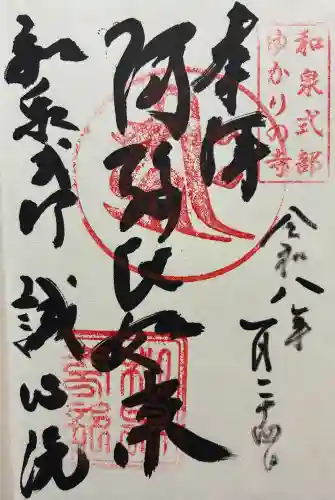 奉拝
和泉式部
ゆかりの寺
令和八年
一月二十四日
阿弥陀如来
和泉式部
誠心院